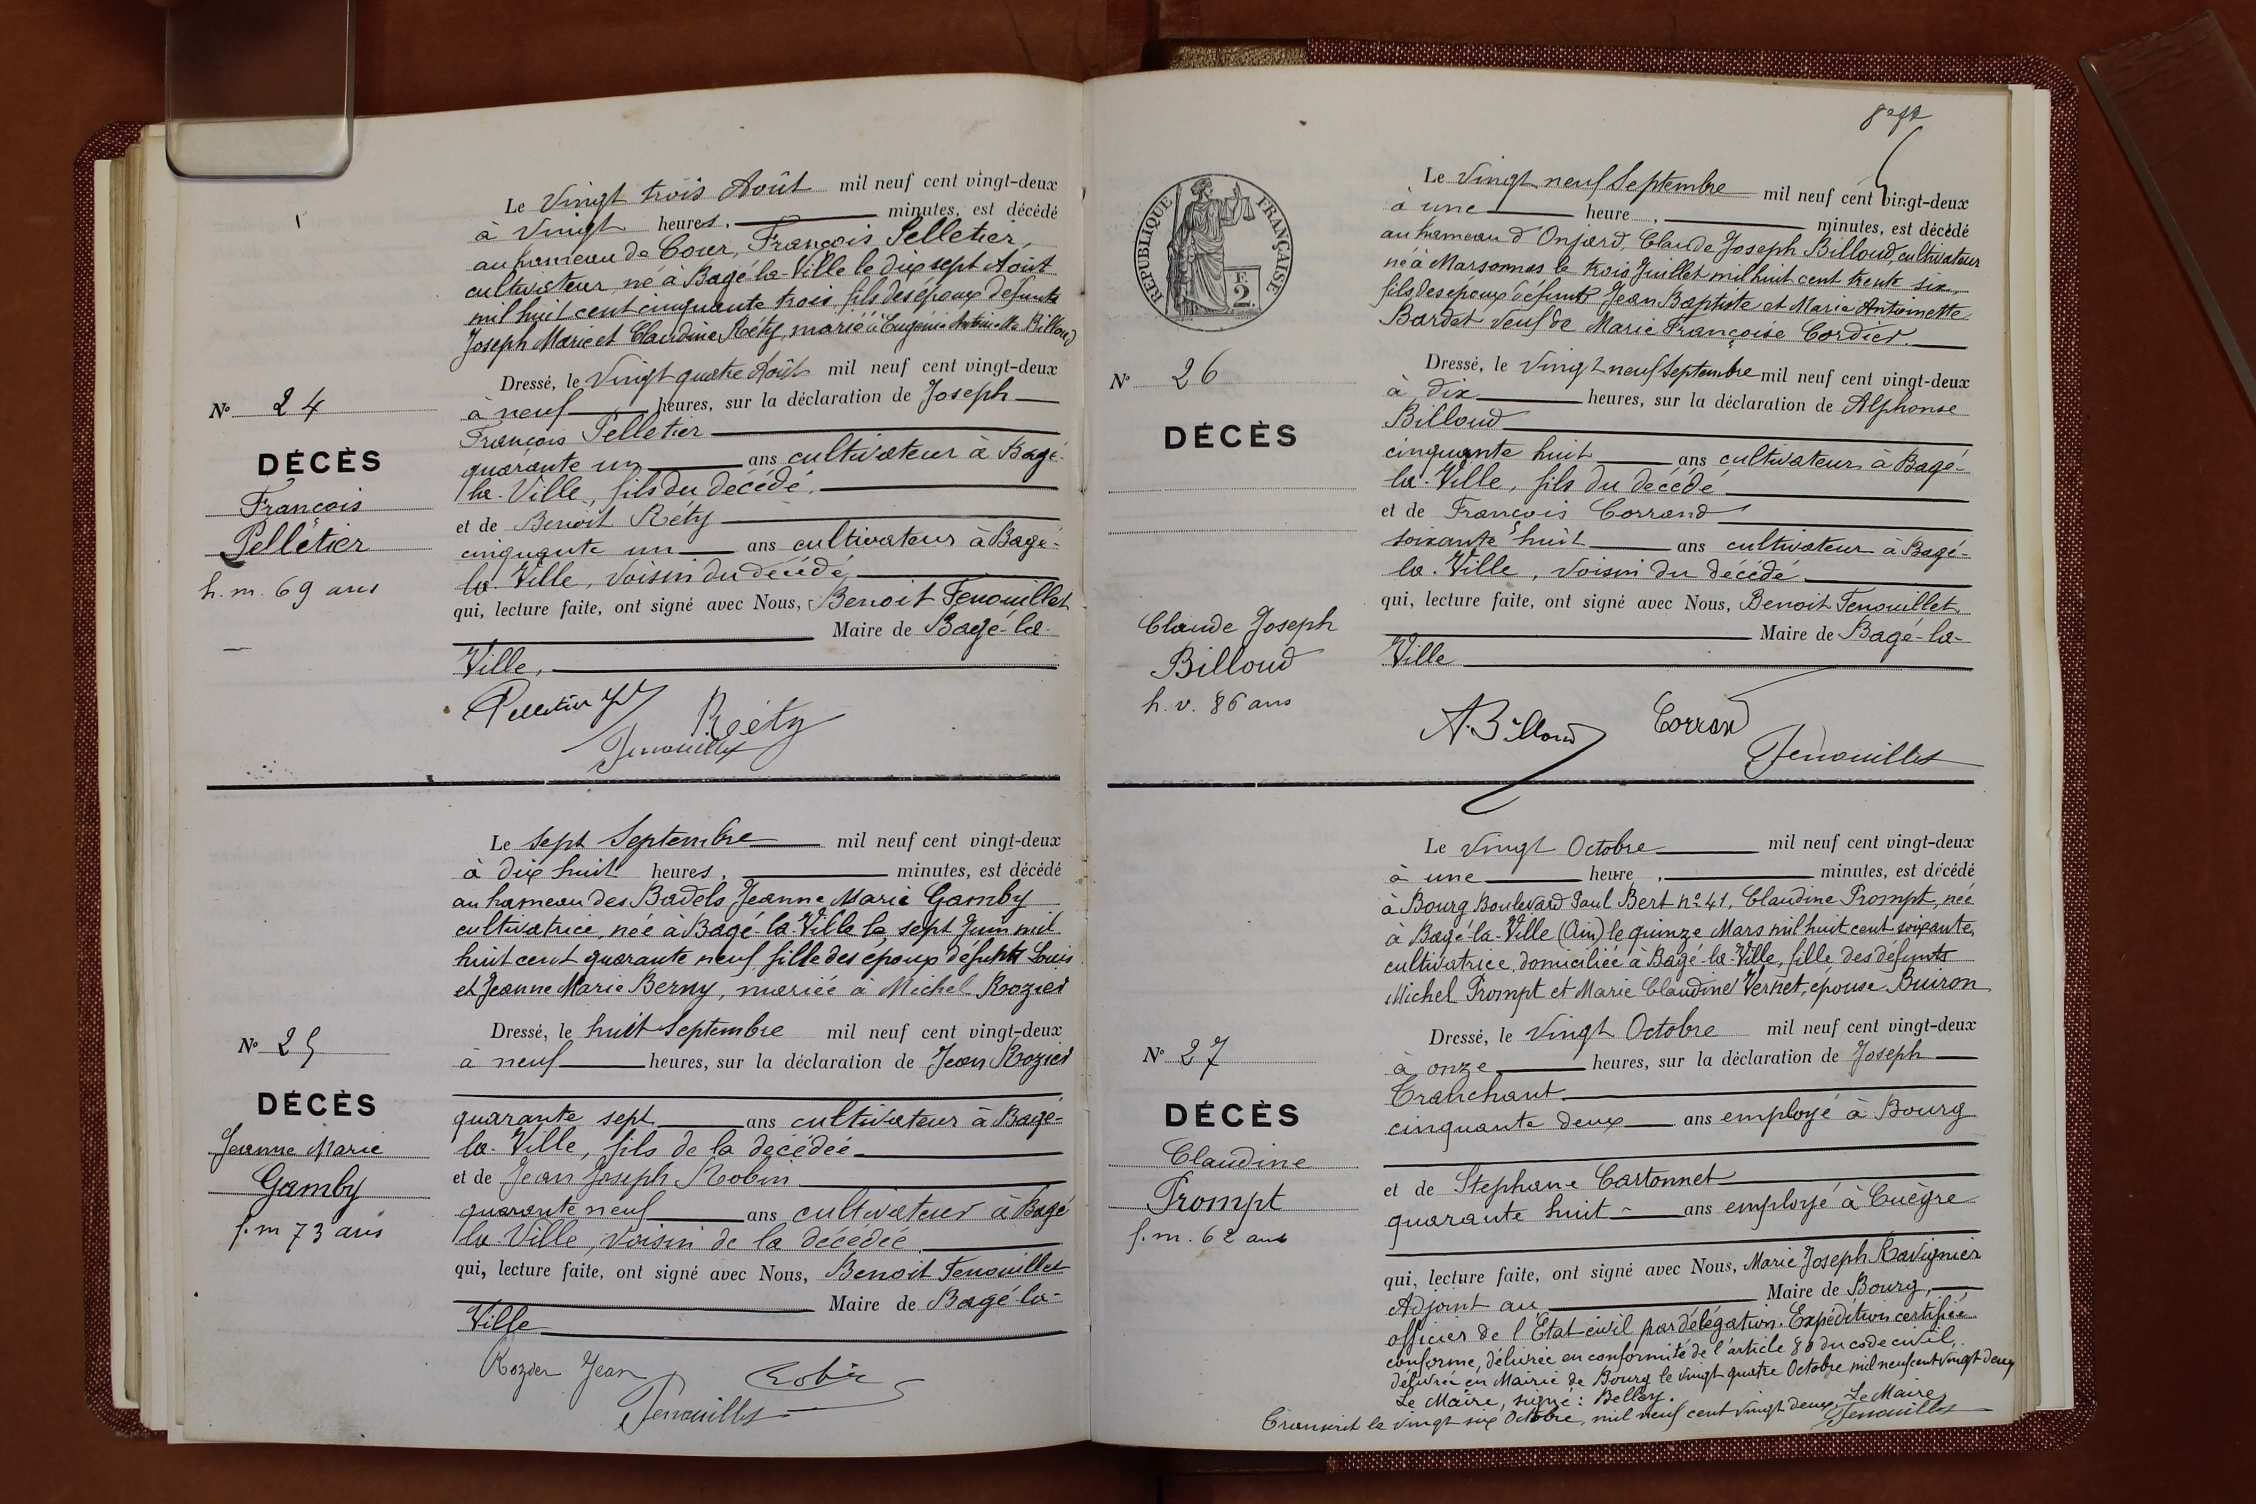 Le vingt trois Août mil neuf cent vingt-deux
à vingt heures, minutes, est décédé
au hameau de Cour, François Pelletier,
cultivateur, né à Bagé-la-Ville le dix sept Août
mil huit cent cinquante trois, fils des époux défunts
Joseph Marie et Claudine Réty, marié à Eugénie Antoinette Billoud
Nº 24
DÉCÈS
François
Pelletier
h. m. 69 ans
Dressé, le vingt quatre Août mil neuf cent vingt-deux
à neuf heures, sur la déclaration de Joseph
François Pelletier
quarante un ans cultivateur à Bagé-
la-Ville, fils du décédé,
et de Benoît Réty
cinquante un ans cultivateur à Bagé-
la-Ville, voisin du décédé
qui, lecture faite, ont signé avec Nous, Benoit Fenouillet
Maire de Bagé-la-
Ville.
Pelletier
Réty
Fenouillet
Le sept Septembre mil neuf cent vingt-deux
à dix huit heures, minutes, est décédé
au hameau des Badels Jeanne Marie Gamby
cultivatrice, née à Bagé-la-Ville le sept Juin mil
huit cent quarante neuf, fille des époux défunts Louis
et Jeanne Marie Berny, mariée à Michel Rozier
Nº 25
DÉCÈS
Jeanne Marie
Gamby
f. m 73 ans
Dressé, le huit Septembre mil neuf cent vingt-deux
à neuf heures, sur la déclaration de Jean Rozier
quarante sept ans cultivateur à Bagé-
la-Ville, fils de la décédée
et de Jean Joseph Robin
quarante neuf ans cultivateur à Bagé
la Ville, voisin de la décédée,
qui, lecture faite, ont signé avec Nous, Benoit Fenouillet
Maire de Bagé-la-
Ville
Rozier Jean
Robin
Fenouillet
RÉPUBLIQUE FRANÇAISE
2
Le vingt neuf Septembre mil neuf cent vingt-deux
à une heure, minutes, est décédé
au hameau d'Onjard, Claude Joseph Billoud, cultivateur
né à Marsonnas le trois Juillet mil huit cent trente six,
fils des époux défunts Jean Baptiste et Marie Antoinette
Bardet veuf de Marie Françoise Cordier.
Nº 26
DÉCÈS
Claude Joseph
Billoud
h. v. 86 ans
Dressé, le vingt neuf Septembre mil neuf cent vingt-deux
à dix heures, sur la déclaration de Alphonse
Billoud
cinquante huit ans cultivateur à Bagé-
la-Ville, fils du décédé
et de François Corrand
soixante huit ans cultivateur à Bagé-
la-Ville, voisin du décédé
qui, lecture faite, ont signé avec Nous, Benoit Fenouillet,
Maire de Bagé-la-
Ville
A. Billoud
Corrand
Fenouillet
Le vingt Octobre mil neuf cent vingt-deux
à une heure, minutes, est décédé
à Bourg Boulevard Paul Bert nº 41, Claudine Prompt, née
à Bagé-la-Ville (Ain) le quinze Mars mil huit cent soixante,
cultivatrice, domiciliée à Bagé-la-Ville, fille des défunts
Michel Prompt et Marie Claudine Vernet, épouse Buiron
Nº 27
DÉCÈS
Claudine
Prompt
f. m. 62 ans
Dressé, le vingt Octobre mil neuf cent vingt-deux
à onze heures, sur la déclaration de Joseph
Tranchant
cinquante deux ans employé à Bourg
et de Stephane Cartonnet
quarante huit ans employé à Cuègre
qui, lecture faite, ont signé avec Nous, Marie Joseph Ravignier
Adjoint au Maire de Bourg,
officier de l'État civil par délégation. Expédition certifiée
conforme, délivrée en conformité de l'article 80 du code civil,
délivrée en Mairie de Bourg le vingt quatre Octobre mil neuf cent vingt deux
Le Maire, signé: Belley.
Transcrit le vingt six Octobre, mil neuf cent vingt deux Le Maire
Fenouillet